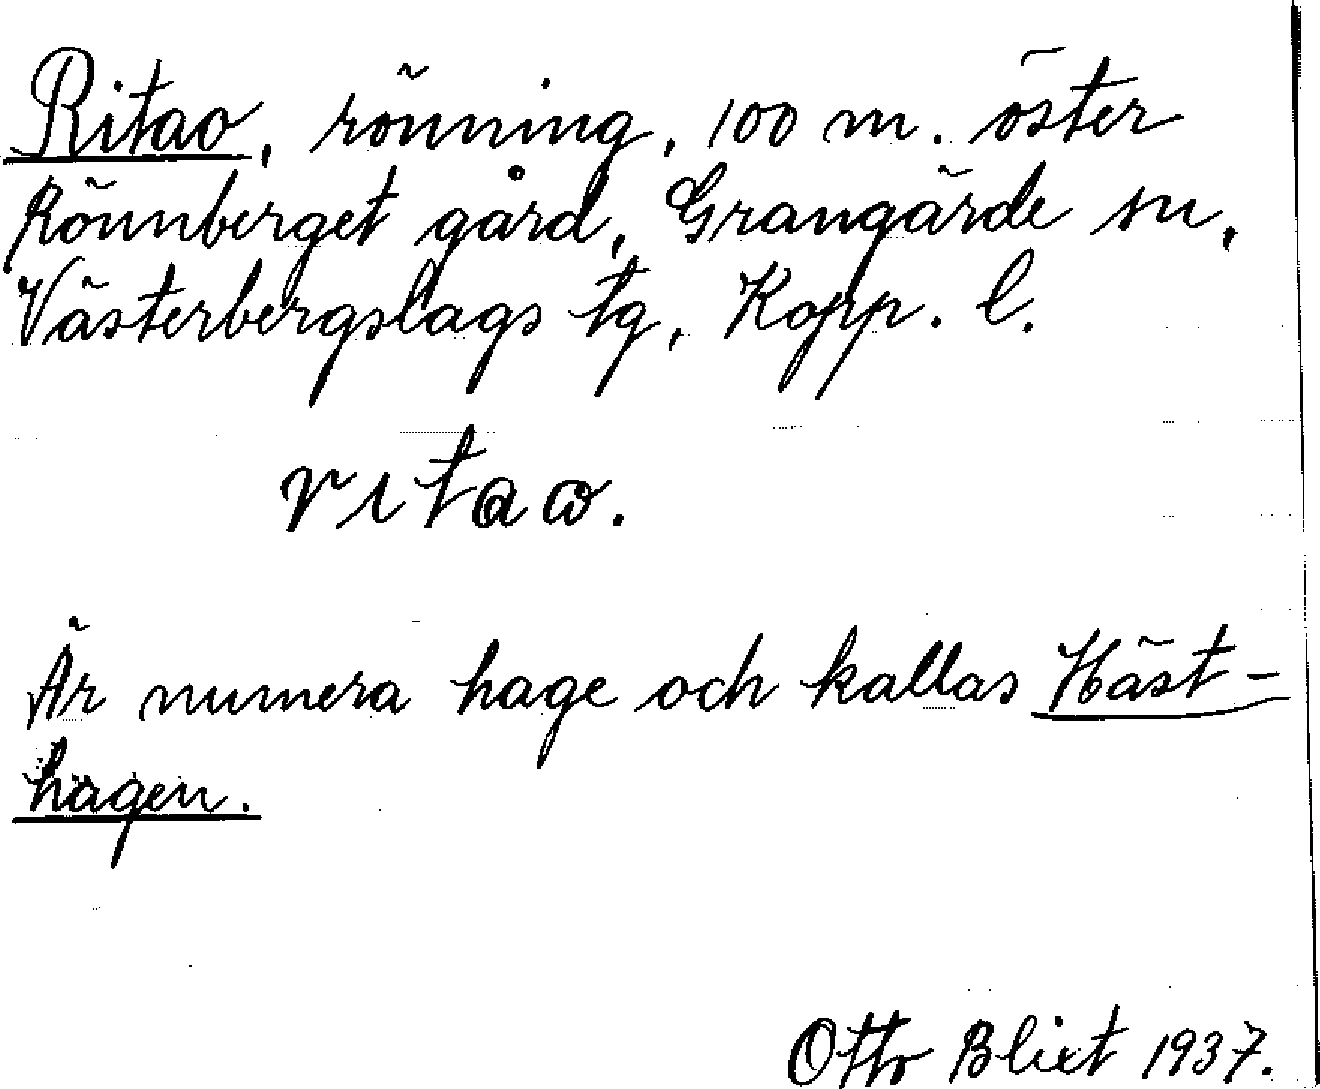 Ritao, rönning, 100 m. öster
Rönnberget gård, Grangärde sn,
Västerbergslags tg, Kopp. l.
ritaω.
Är numera hage och kallas Häst-
hagen.
Otto Blixt 1937.